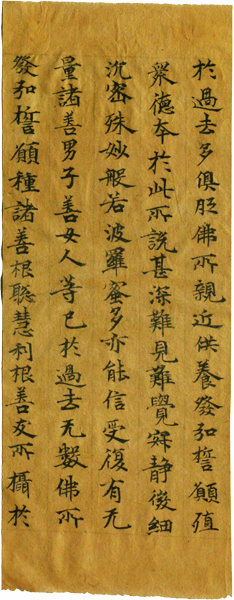 於過去多俱胝佛所親近供養發弘誓願殖
衆德本於此所說甚深難見難覺寂静微細
沉密殊妙般若波羅蜜多亦能信受復有无
量諸善男子善女人等已於過去无數佛所
發弘誓願種諸善根聡慧利根善友所攝於